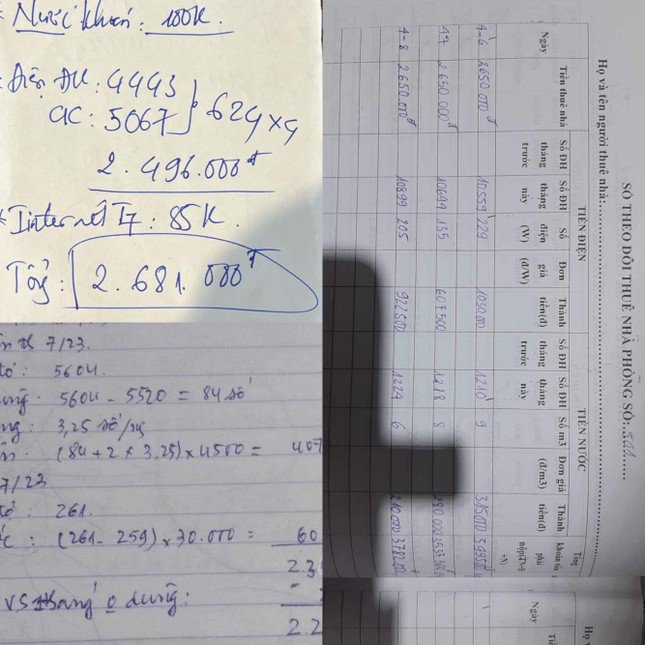 Nước khoán: 100K.
Điện ĐK: 4443
CK: 5067 } 624 x 4
2.496.000đ
* Internet T7: 85K.
Tổng: 2.681.000đ
7/23.
5604
5604 - 5520 = 84 số
3,25 số/ng
(84 + 2 x 3,25) x 4500 = 407
7/23
261.
(261 - 259) x 30.000 = 60
dùng:
2.2
SỔ THEO DÕI THUÊ NHÀ PHÒNG SỐ:
Họ và tên người thuê nhà:
TIỀN ĐIỆN TIỀN NƯỚC
Ngày Tiền thuê nhà Số ĐH tháng trước Số ĐH tháng này Số điện (W) Đơn giá (đ/W) Thành tiền(đ) Số ĐH tháng trước Số ĐH tháng này Số m3 Đơn giá (đ/m3) Thành tiền(đ) Tổng
4-6 2650.000đ 10559 229 1030.000 1210 9 315.000
4-7 2650.000đ 10694 135 607500 1218 8 280.000
4-8 2650.000đ 10899 205 922500 1224 6 210.000
Ngày